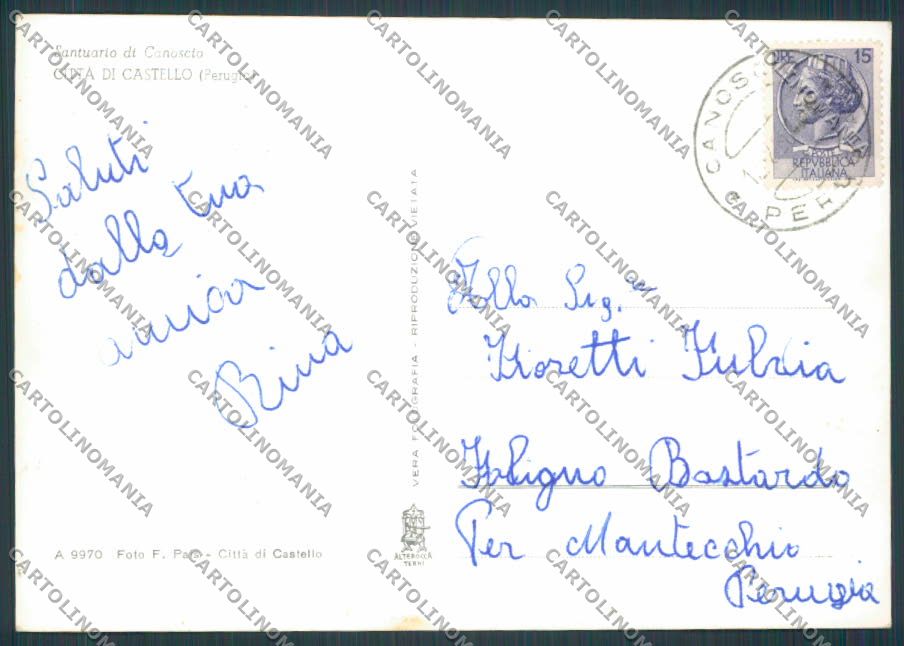 Santuario di Canoscio
CITTÀ DI CASTELLO (Perugia)
Saluti
dalla tua
amica
Rina
A 9970 Foto F. Pais - Città di Castello
VERA FOTOGRAFIA - RIPRODUZIONE VIETATA
ALTEROCCA
TERNI
LIRE 15
REPVBBLICA
ITALIANA
CANOSCIO
PER
Alla Sig.na
Moretti Fulvia
Foligno Bastardo
Per Mantecchio
Perugia
CARTOLINOMANIA